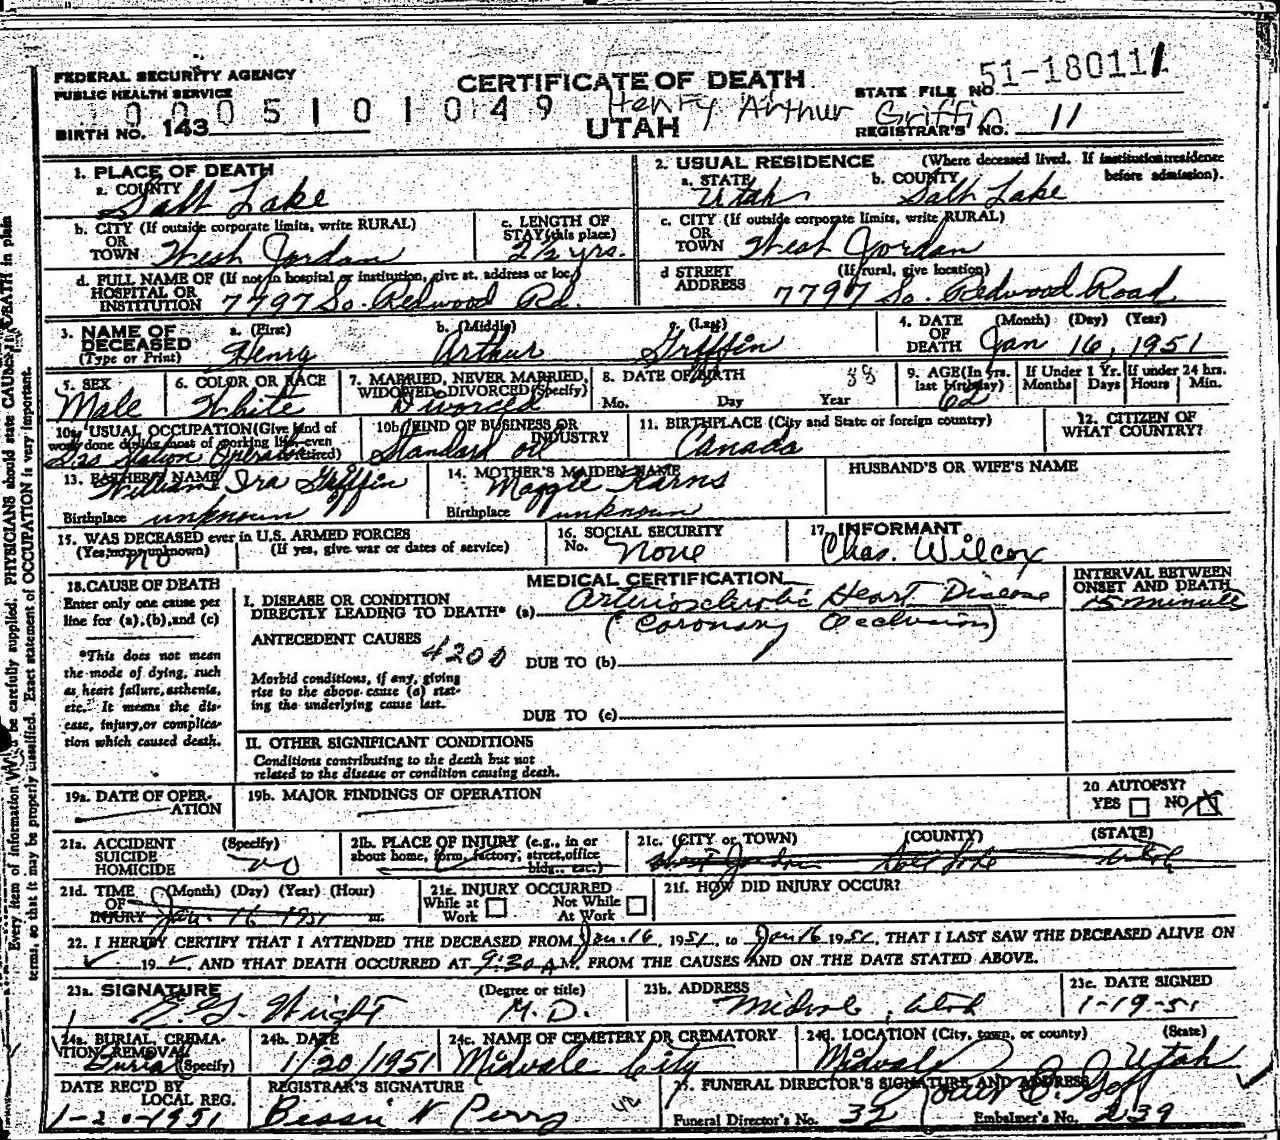 FEDERAL SECURITY AGENCY
PUBLIC HEALTH SERVICE
CERTIFICATE OF DEATH
STATE FILE NO. 51-180111
0005101049 Henry Arthur Griffin
BIRTH NO. 143
UTAH
REGISTRAR'S NO. 11
1. PLACE OF DEATH
a. COUNTY
Salt Lake
2. USUAL RESIDENCE (Where deceased lived. If institution: residence before admission).
a. STATE Utah b. COUNTY Salt Lake
b. CITY (If outside corporate limits, write RURAL)
OR
TOWN West Jordan
c. LENGTH OF
STAY (this place)
2 1/2 yrs.
c. CITY (If outside corporate limits, write RURAL)
OR
TOWN West Jordan
d. FULL NAME OF (If not in hospital or institution, give st. address or loc.)
HOSPITAL OR
INSTITUTION 7797 So. Redwood Rd.
d STREET (If rural, give location)
ADDRESS 7797 So. Redwood Road
3. NAME OF
DECEASED
(Type or Print)
a. (First) b. (Middle) c. (Last)
Henry Arthur Griffin
4. DATE (Month) (Day) (Year)
OF
DEATH Jan 16, 1951
5. SEX
Male
6. COLOR OR RACE
White
7. MARRIED, NEVER MARRIED,
WIDOWED, DIVORCED (Specify)
Divorced
8. DATE OF BIRTH 88
Mo. Day Year
9. AGE (In yrs.
last birthday)
62
If Under 1 Yr.
Months Days
If under 24 hrs.
Hours Min.
10a. USUAL OCCUPATION (Give kind of
work done during most of working life, even
if retired)
Gas Station Operator
10b. KIND OF BUSINESS OR
INDUSTRY
Standard oil
11. BIRTHPLACE (City and State or foreign country)
Canada
12. CITIZEN OF
WHAT COUNTRY?
13. FATHER'S NAME
William Ira Griffin
Birthplace unknown
14. MOTHER'S MAIDEN NAME
Maggie Karns
Birthplace unknown
HUSBAND'S OR WIFE'S NAME
15. WAS DECEASED ever in U.S. ARMED FORCES
(Yes, no, or unknown) (If yes, give war or dates of service)
no
16. SOCIAL SECURITY
No. None
17. INFORMANT
Chas. Wilcox
18. CAUSE OF DEATH
Enter only one cause per
line for (a), (b), and (c)
*This does not mean
the mode of dying, such
as heart failure, asthenia,
etc. It means the dis-
ease, injury, or complica-
tion which caused death.
MEDICAL CERTIFICATION
INTERVAL BETWEEN
ONSET AND DEATH
I. DISEASE OR CONDITION
DIRECTLY LEADING TO DEATH* (a) Arteriosclerotic Heart Disease
15 minute
(Coronary Occlusion)
ANTECEDENT CAUSES
4200
DUE TO (b)
Morbid conditions, if any, giving
rise to the above cause (a) stat-
ing the underlying cause last.
DUE TO (c)
II. OTHER SIGNIFICANT CONDITIONS
Conditions contributing to the death but not
related to the disease or condition causing death.
19a. DATE OF OPER-
ATION
19b. MAJOR FINDINGS OF OPERATION
20 AUTOPSY?
YES NO X
21a. ACCIDENT (Specify)
SUICIDE
HOMICIDE no
21b. PLACE OF INJURY (e.g., in or
about home, farm, factory, street, office
bldg., etc.)
21c. (CITY or TOWN) (COUNTY) (STATE)
West Jordan Salt Lake Utah
21d. TIME (Month) (Day) (Year) (Hour)
OF
INJURY Jan. 16 1951 m.
21e. INJURY OCCURRED
While at Not While
Work At Work
21f. HOW DID INJURY OCCUR?
22. I HEREBY CERTIFY THAT I ATTENDED THE DECEASED FROM Jan. 16, 1951, to Jan 16 1951, THAT I LAST SAW THE DECEASED ALIVE ON
19 , AND THAT DEATH OCCURRED AT 9:30 A.M. FROM THE CAUSES AND ON THE DATE STATED ABOVE.
23a. SIGNATURE (Degree or title)
Wright M.D.
23b. ADDRESS
Midvale, Utah
23c. DATE SIGNED
1-19-51
24a. BURIAL, CREMA-
TION, REMOVAL
(Specify)
Burial
24b. DATE
1/20/1951
24c. NAME OF CEMETERY OR CREMATORY
Midvale City
24d. LOCATION (City, town, or county) (State)
Midvale Utah
DATE REC'D BY
LOCAL REG.
1-20-1951
REGISTRAR'S SIGNATURE
Bessie N Perry
25. FUNERAL DIRECTOR'S SIGNATURE AND ADDRESS
Funeral Director's No. 32 Embalmer's No. 239
Every item of information should be carefully supplied. PHYSICIANS should state CAUSE OF DEATH in plain
terms, so that it may be properly classified. Exact statement of OCCUPATION is very important.